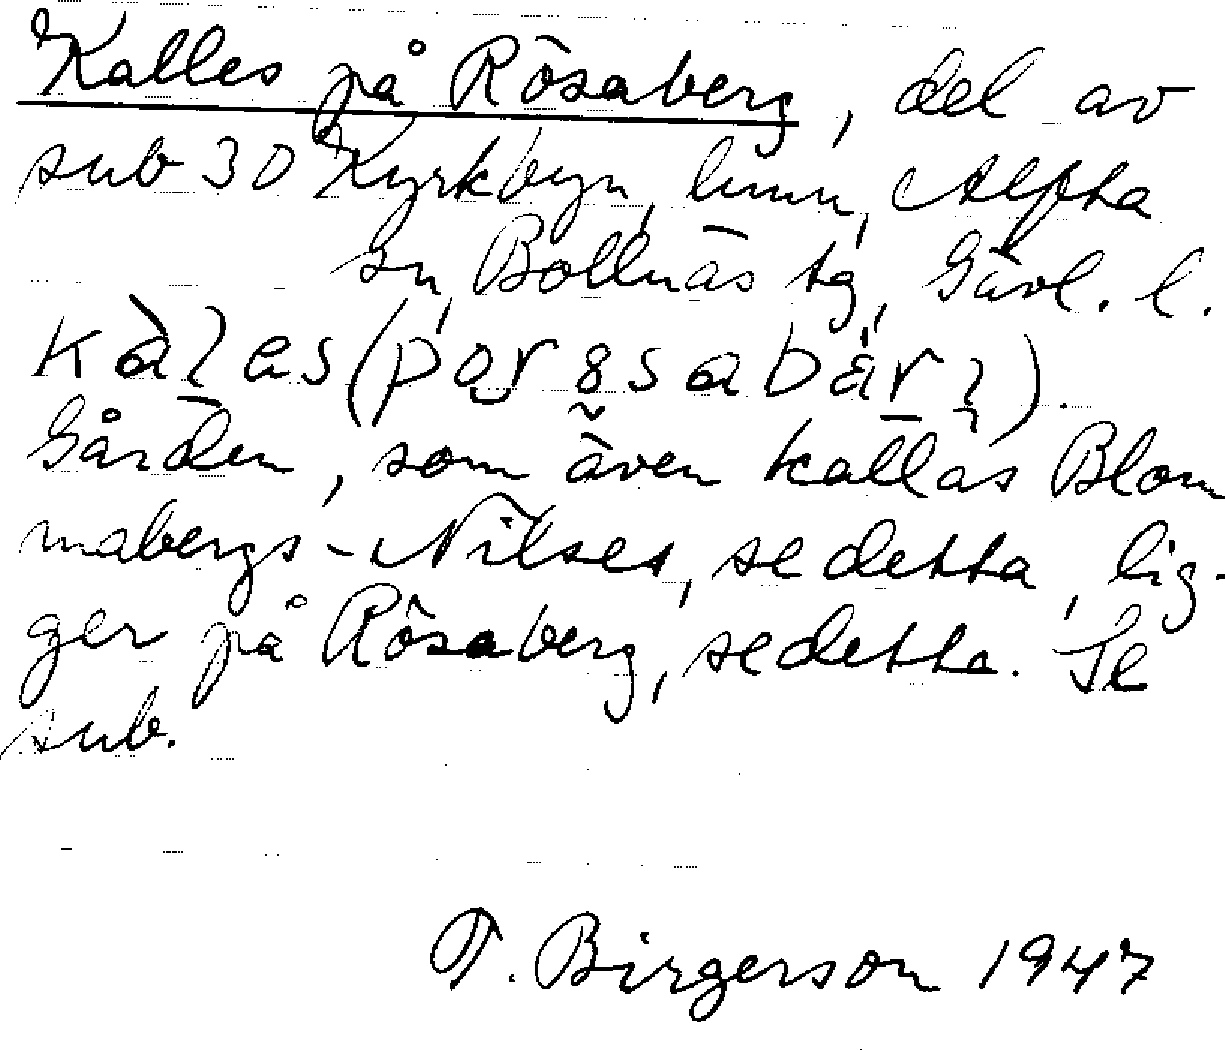 Kalles på Rösaberg, del av
sub 30 Kyrkbyn, hmn, Alfta
sn, Bollnäs tg, Gävl. l.
Gården, som även kallas Blom
mabergs-Nilses, se detta, lig-
ger på Rösaberg, se detta. Se
sub.
T. Birgerson 1947